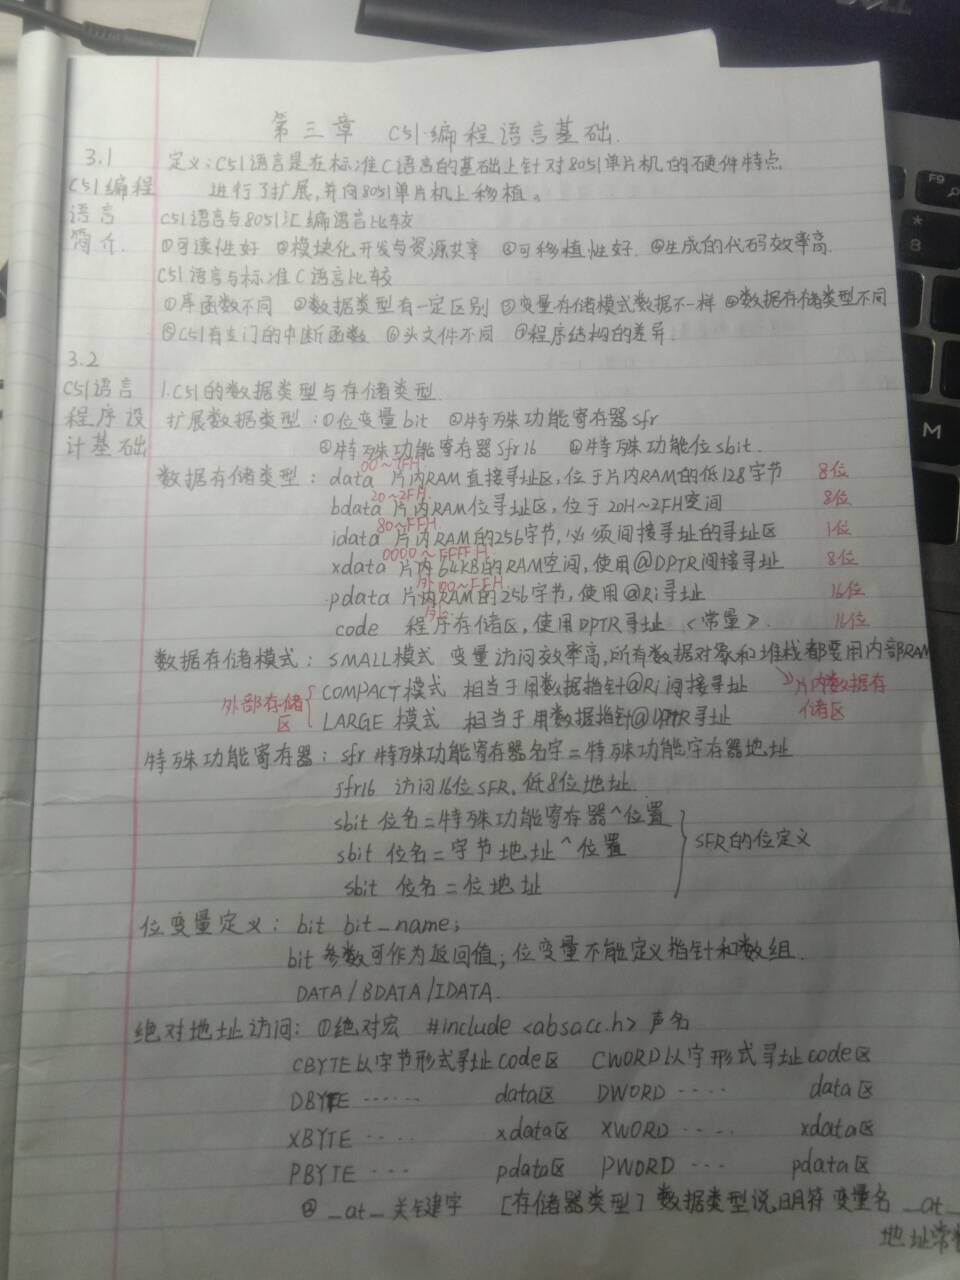 第三章 C51编程语言基础.
3.1 定义:C51语言是在标准C语言的基础上针对8051单片机的硬件特点
C51编程 进行了扩展,并向8051单片机上移植。
语言 C51语言与8051汇编语言比较
简介. ①可读性好 ②模块化开发与资源共享 ③可移植性好 ④生成的代码效率高.
C51语言与标准C语言比较
①库函数不同 ②数据类型有一定区别 ③变量存储模式数据不一样 ④数据存储类型不同
⑤C51有专门的中断函数 ⑥头文件不同 ⑦程序结构的差异.
3.2
C51语言 1.C51的数据类型与存储类型.
程序设 扩展数据类型:①位变量bit ②特殊功能寄存器sfr
计基础 ③特殊功能寄存器sfr16 ④特殊功能位sbit.
00~7FH
数据存储类型:data 片内RAM直接寻址区,位于片内RAM的低128字节 8位
20~2FH
bdata 片内RAM位寻址区,位于20H~2FH空间 8位
80~FFH
idata 片内RAM的256字节,必须间接寻址的寻址区 1位
0000~FFFFH
xdata 片内64KB的RAM空间,使用@DPTR间接寻址 8位
外100~FFH
pdata 片内RAM的256字节,使用@Ri寻址 16位
code 程序存储区,使用DPTR寻址 <常量>. 16位
数据存储模式:SMALL模式 变量访问效率高,所有数据对象和堆栈都要用内部RAM
外部存储区 { COMPACT模式 相当于用数据指针@Ri间接寻址 》片内数据存储区
LARGE模式 相当于用数据指针@DPTR寻址
特殊功能寄存器:sfr 特殊功能寄存器名字=特殊功能字存器地址
sfr16 访问16位SFR,低8位地址.
sbit 位名=特殊功能寄存器^位置
sbit 位名=字节地址^位置 } SFR的位定义
sbit 位名=位地址
位变量定义:bit bit_name;
bit参数可作为返回值;位变量不能定义指针和数组.
DATA/BDATA/IDATA.
绝对地址访问:①绝对宏 #include <absacc.h> 声名
CBYTE以字节形式寻址code区 CWORD以字形式寻址code区
DBYTE ...... data区 DWORD .... data区
XBYTE .... xdata区 XWORD ..... xdata区
PBYTE ... pdata区 PWORD ... pdata区
② _at_关键字 [存储器类型] 数据类型说明符 变量名 _at_
地址常